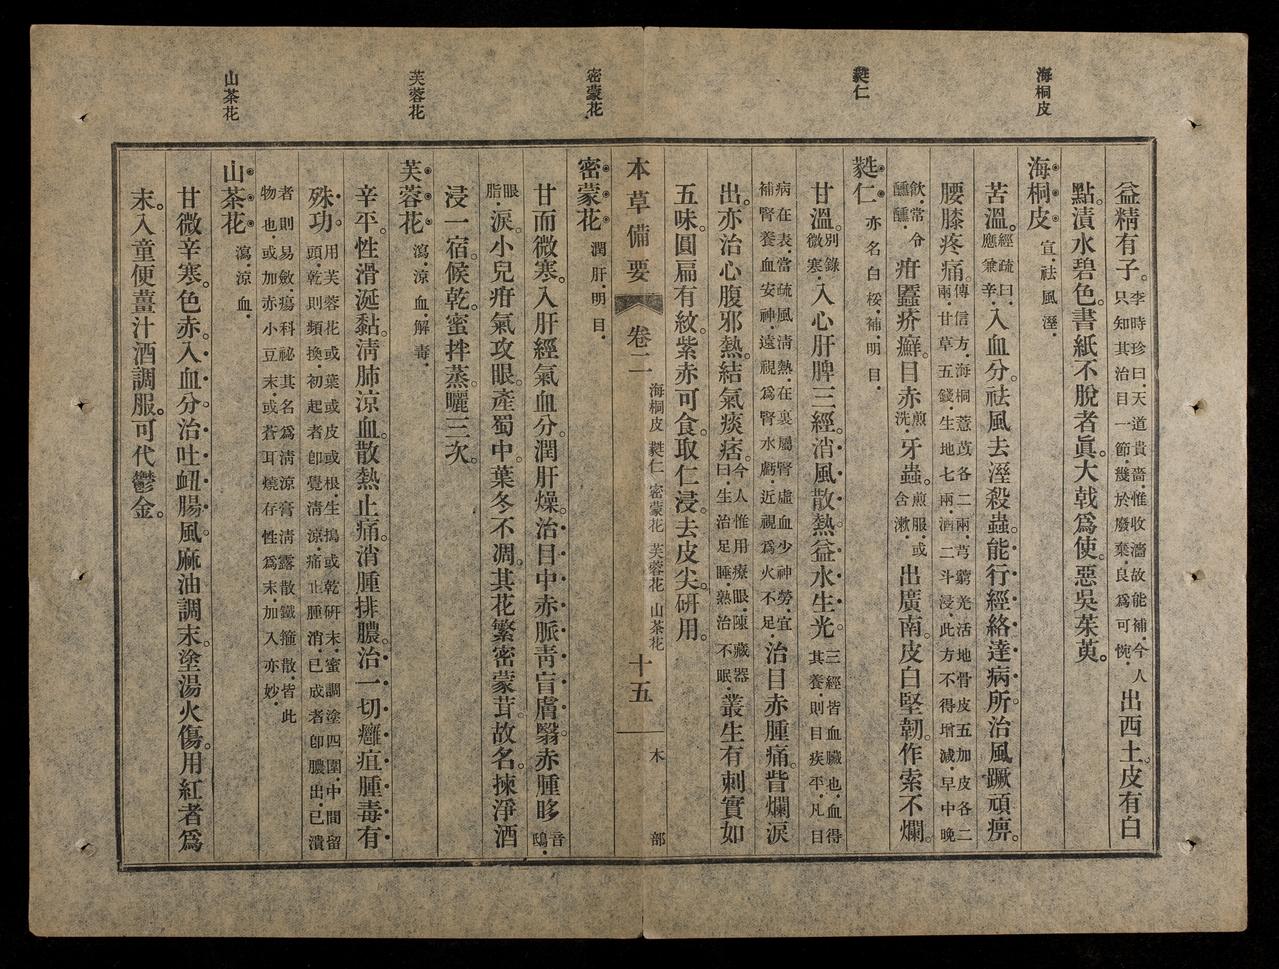 海桐皮
蕤仁
密蒙花
芙蓉花
山茶花
益精有子。李時珍曰.天道貴嗇.惟收濇故能補.今人只知其治目一節.幾於廢棄.良為可惋.出西土。皮有白
點。漬水碧色。書紙不脫者眞。大戟爲使。惡吳茱萸。
海桐皮 宣.祛風溼.
苦溫。經疏曰.應兼辛.入血分。祛風去溼殺蟲。能行經絡達病所。治風蹶頑痹。
腰膝疼痛。傳信方.海桐薏苡各二兩.芎藭羌活地骨皮五加皮各二兩.甘草五錢.生地七兩.酒二斗浸.此方不得增減.早中晚
飲.常令醺醺.疳𧏾疥癬。目赤煎洗.牙蟲。煎服.或含漱.出廣南。皮白堅韌。作索不爛。
蕤仁 亦名白桵.補.明目.
甘溫。別錄微寒.入心肝脾三經。消風散熱。益水生光。三經皆血臟也.血得其養.則目疾平.凡目
病在表.當疏風淸熱.在裏屬腎虛.血少神勞.宜補腎養血安神.遠視爲腎水虧.近視爲火不足.治目赤腫痛。眥爛淚
出。亦治心腹邪熱。結氣痰痞。今人惟用療眼.陳藏器曰.生治足睡.熟治不眠.叢生有刺。實如
五味。圓扁有紋。紫赤可食。取仁浸。去皮尖。研用。
本草備要 卷二 海桐皮 蕤仁 密蒙花 芙蓉花 山茶花 十五 木部
密蒙花 潤肝.明目.
甘而微寒。入肝經氣血分。潤肝燥。治目中赤脈。靑盲膚翳。赤腫眵音鴟.
眼脂.淚。小兒疳氣攻眼。產蜀中。葉冬不凋。其花繁密蒙茸。故名。揀淨酒
浸一宿。候乾。蜜拌蒸曬三次。
芙蓉花 瀉.涼血.解毒.
辛平。性滑涎黏。淸肺涼血。散熱止痛。消腫排膿。治一切癰疽腫毒有
殊功。用芙蓉花或葉或皮或根.生搗或乾研末.蜜調塗四圍.中間留頭.乾則頻換.初起者卽覺淸涼.痛止腫消.已成者卽膿出.已潰
者則易斂.瘍科祕其名爲淸涼膏淸露散鐵箍散.皆此物也.或加赤小豆末.或蒼耳燒存性爲末.加入亦妙.
山茶花 瀉.涼血.
甘微辛寒。色赤。入血分。治吐衄腸風。麻油調末。塗湯火傷。用紅者爲
末。入童便薑汁酒調服。可代鬱金。